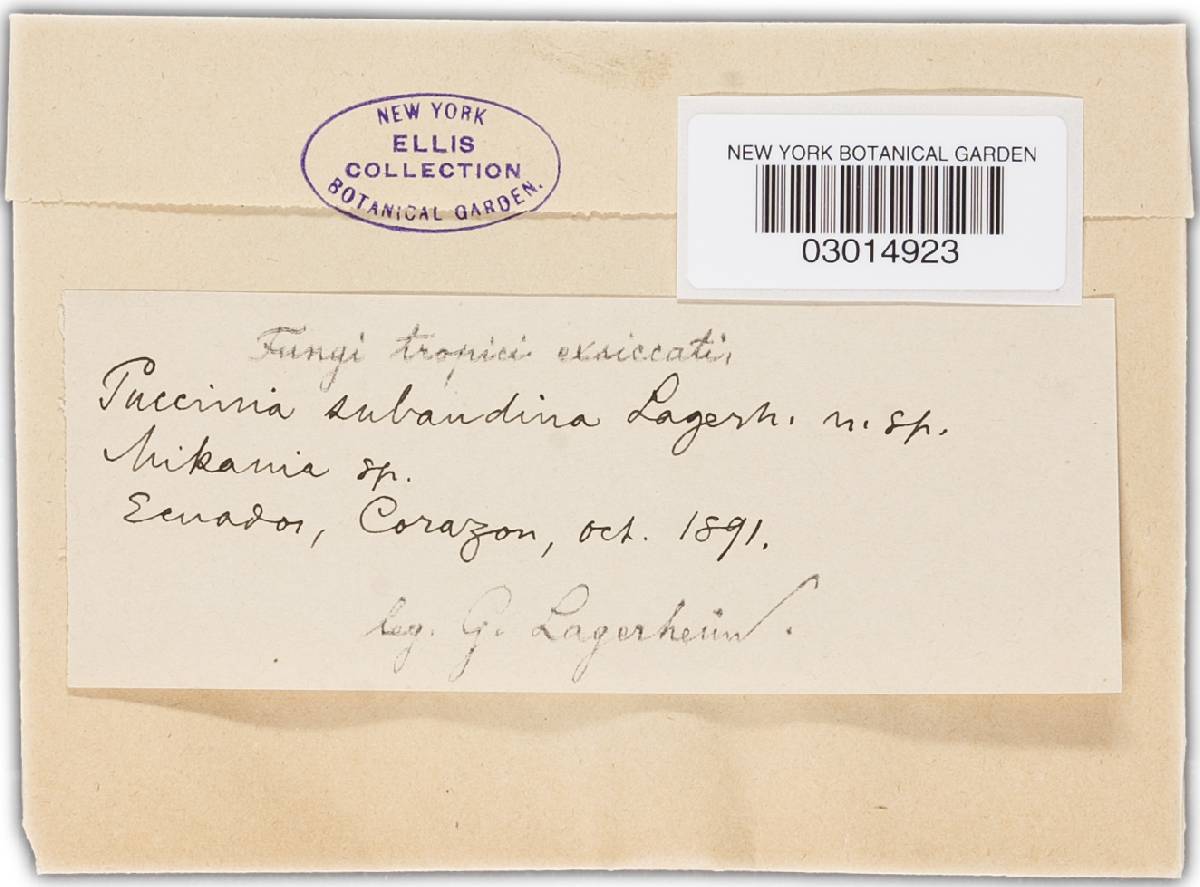 NEW YORK
ELLIS
COLLECTION
BOTANICAL GARDEN.
NEW YORK BOTANICAL GARDEN
03014923
Fungi tropici exsiccati,
Puccinia subandina Lagerh. n. sp.
Mikania sp.
Ecuador, Corazon, oct. 1891.
leg. G. Lagerheim.